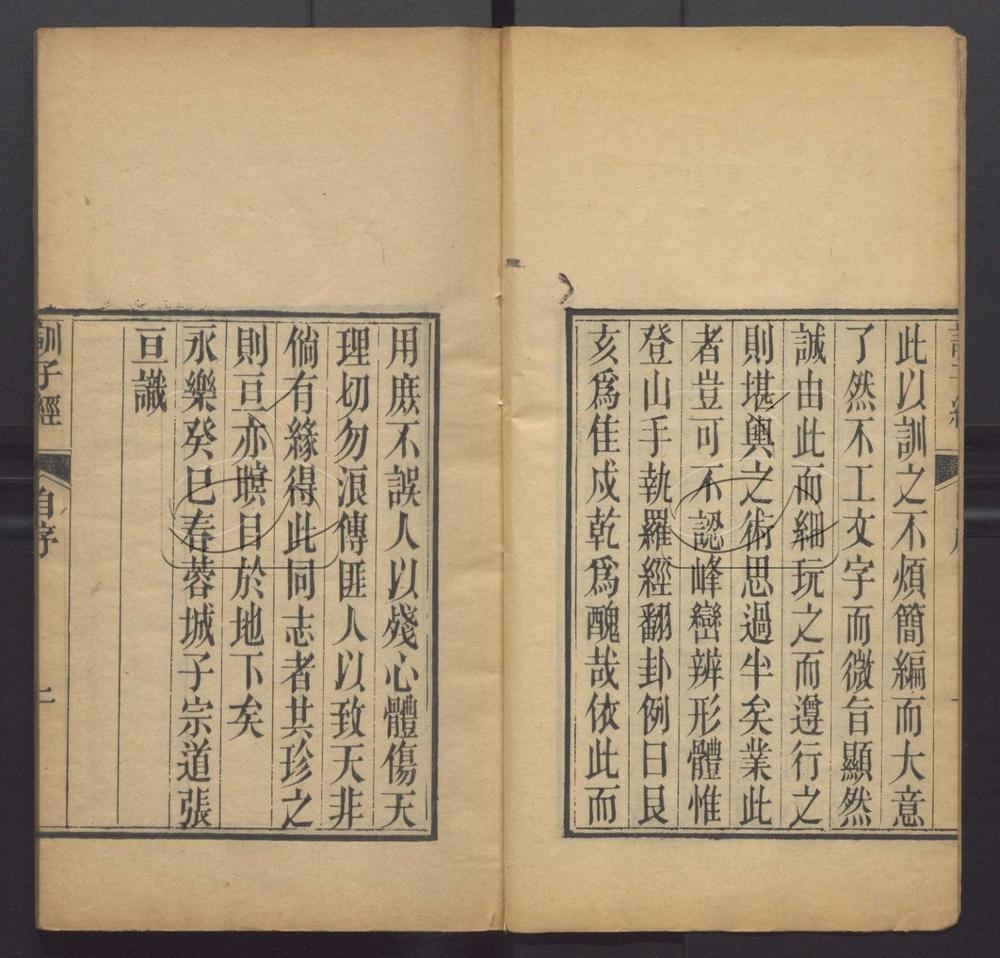 此以訓之不煩簡編而大意
了然不工文字而微旨顯然
誠由此而細玩之而遵行之
則堪輿之術思過半矣業此
者豈可不認峰巒辨形體惟
登山手執羅經翻卦例曰艮
亥爲佳戍乾爲醜哉依此而
用庶不誤人以殘心體傷天
理切勿浪傳匪人以致天非
倘有緣得此同志者其珍之
則亘亦瞑目於地下矣
永樂癸巳春蓉城子宗道張
亘識
訓子經 自序 二